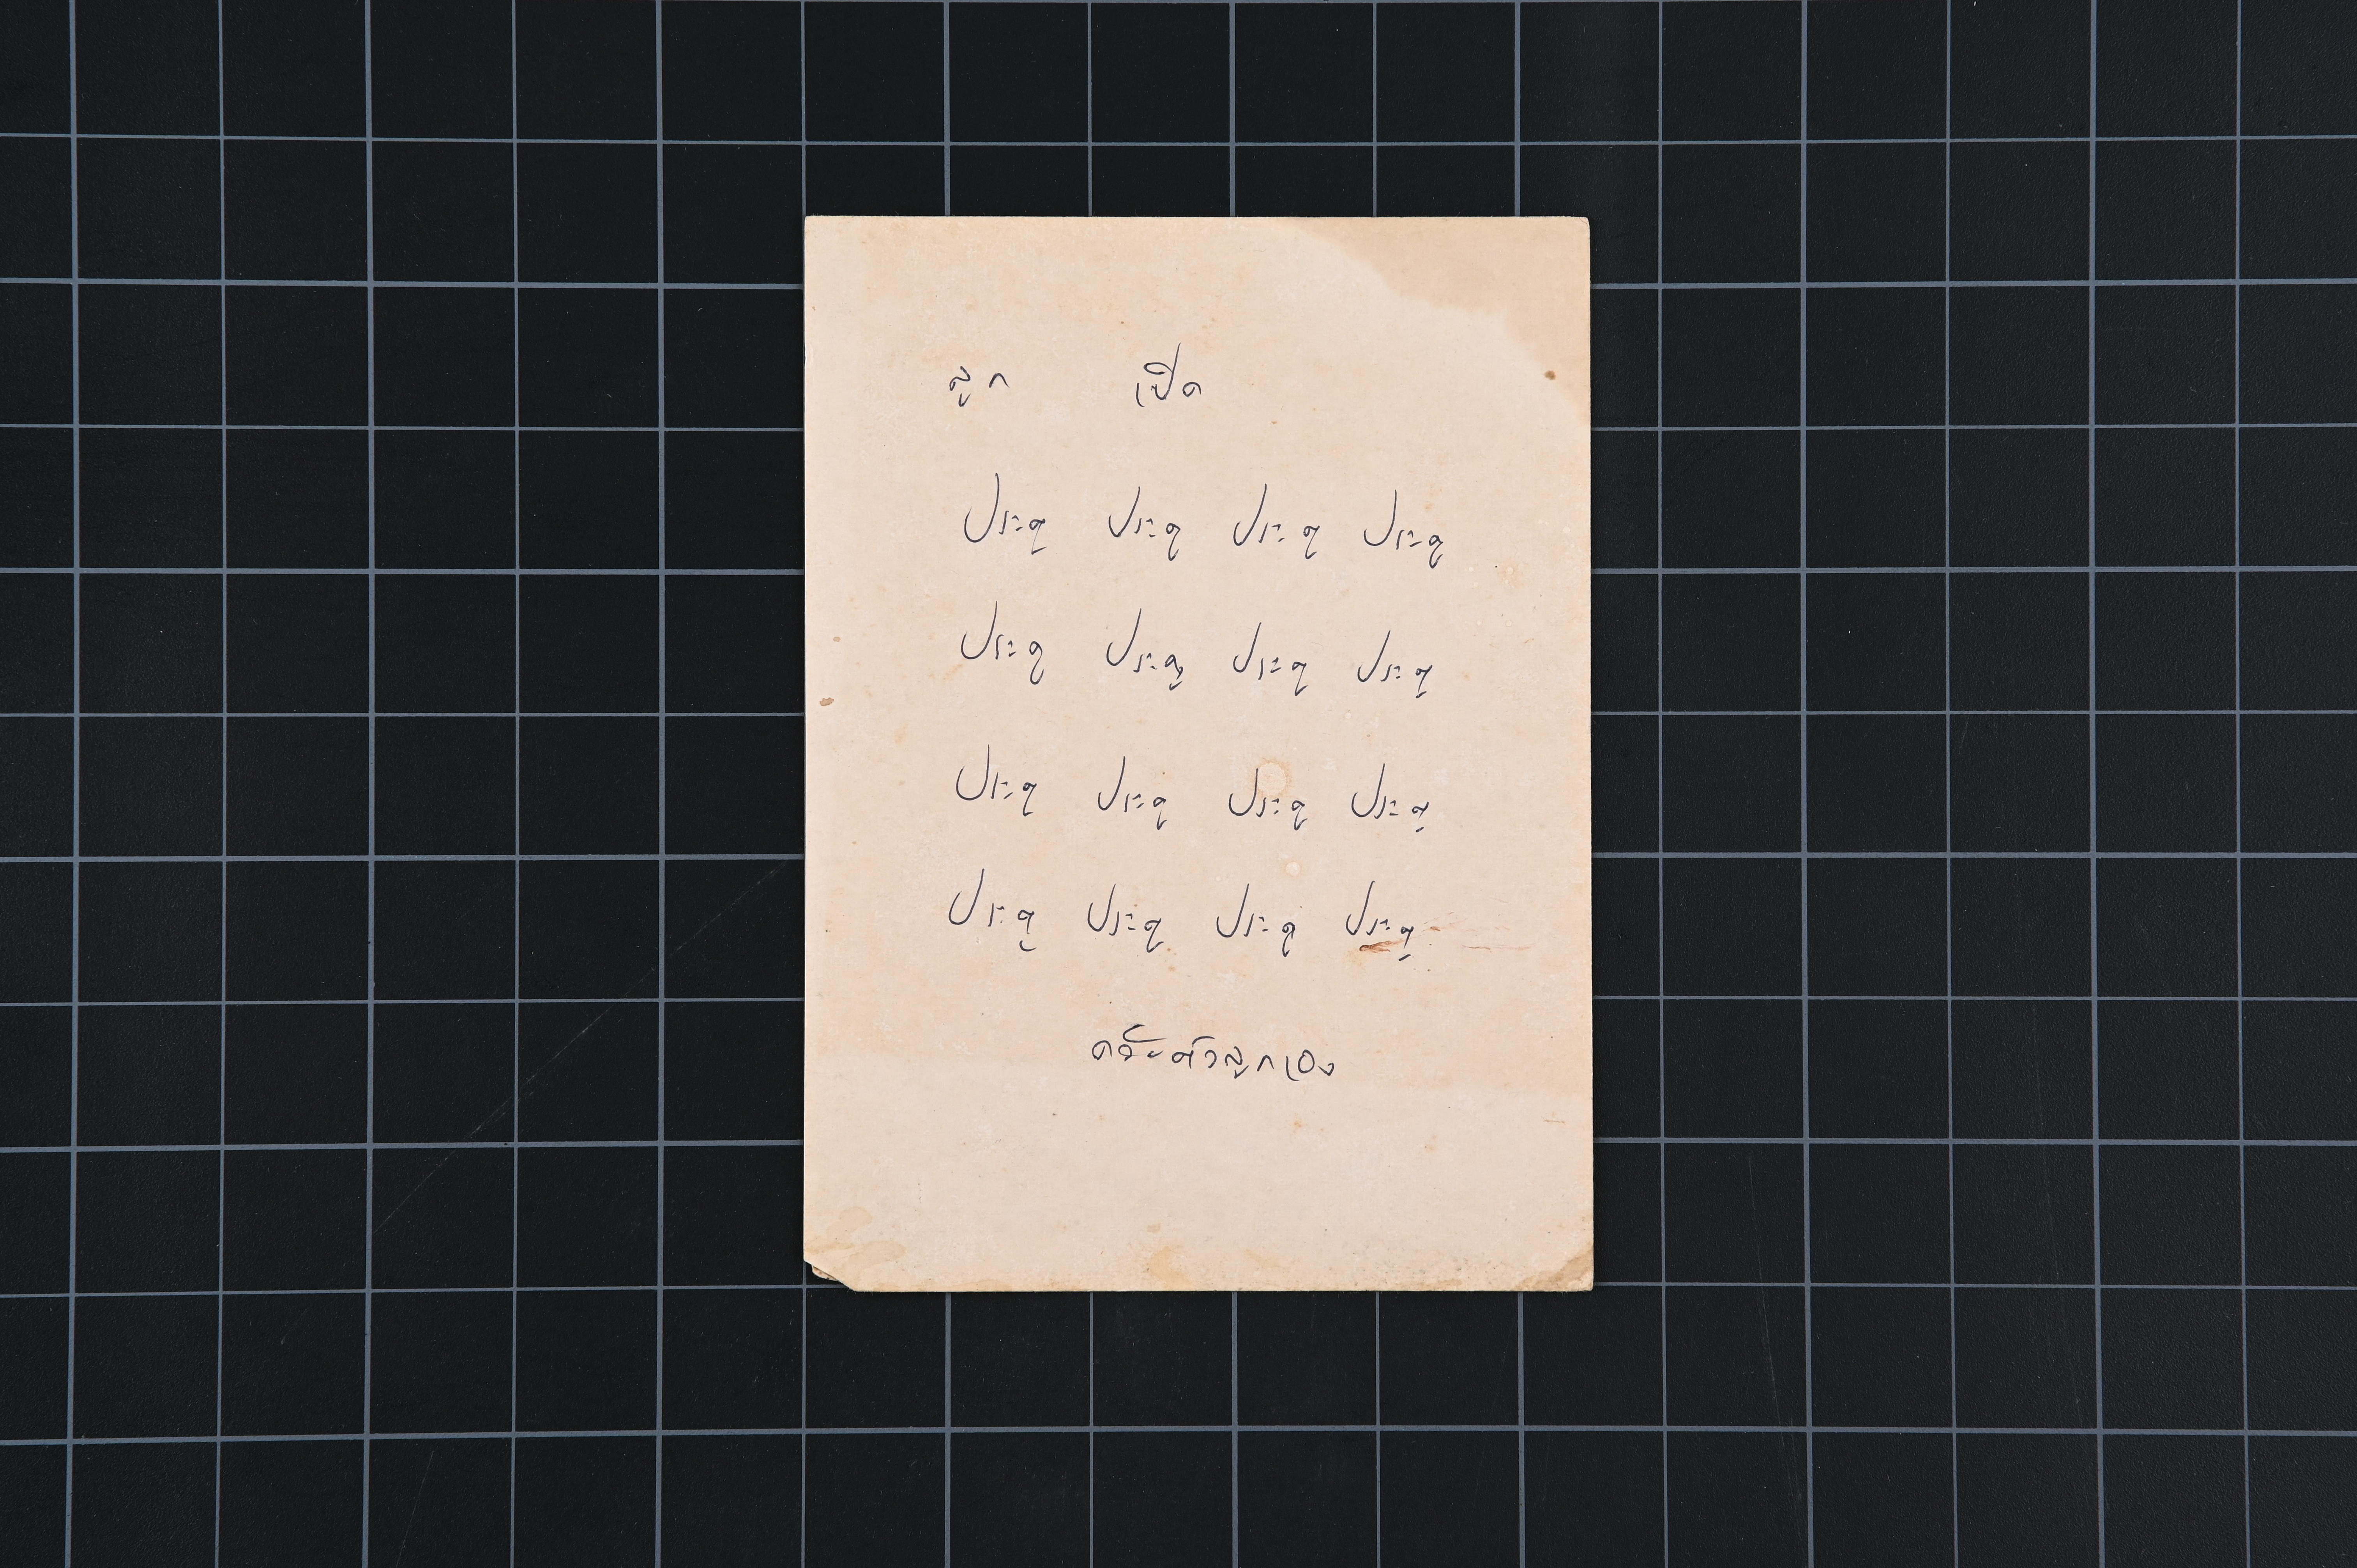 ลูก เปิด
ประตู ประตู ประตู ประตู
ประตู ประตู ประตู ประตู
ประตู ประตู ประตู ประตู
ประตู ประตู ประตู ประตู
ด้วยตัวลูกเอง